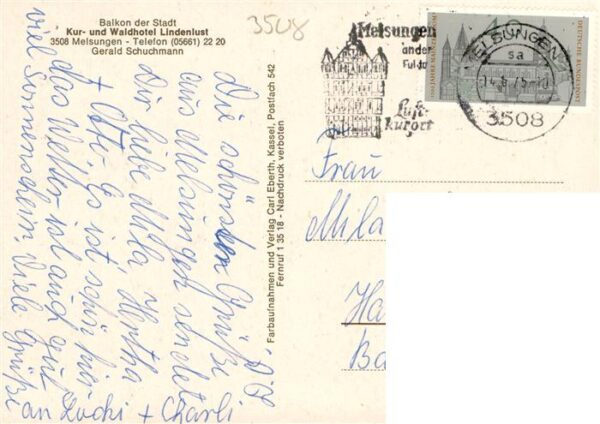 Balkon der Stadt
Kur- und Waldhotel Lindenlust
3508 Melsungen - Telefon (05661) 22 20
Gerald Schuchmann
3508
Melsungen
an der
Fulda
Luft-
kurort
MELSUNGEN
sa
3508
DEUTSCHE BUNDESPOST
Farbaufnahmen und Verlag Carl Eberth, Kassel, Postfach 542
Fernruf 1 35 18 - Nachdruck verboten
Die schönsten Grüße
aus Melsungen sendet
Dir liebe Mila Hertha
+ Otto. Es ist schön hier
das Wetter ist auch gut
viel Sonnenschein. Viele Grüße
an + Charli
Frau
Mila
Ha
Ba